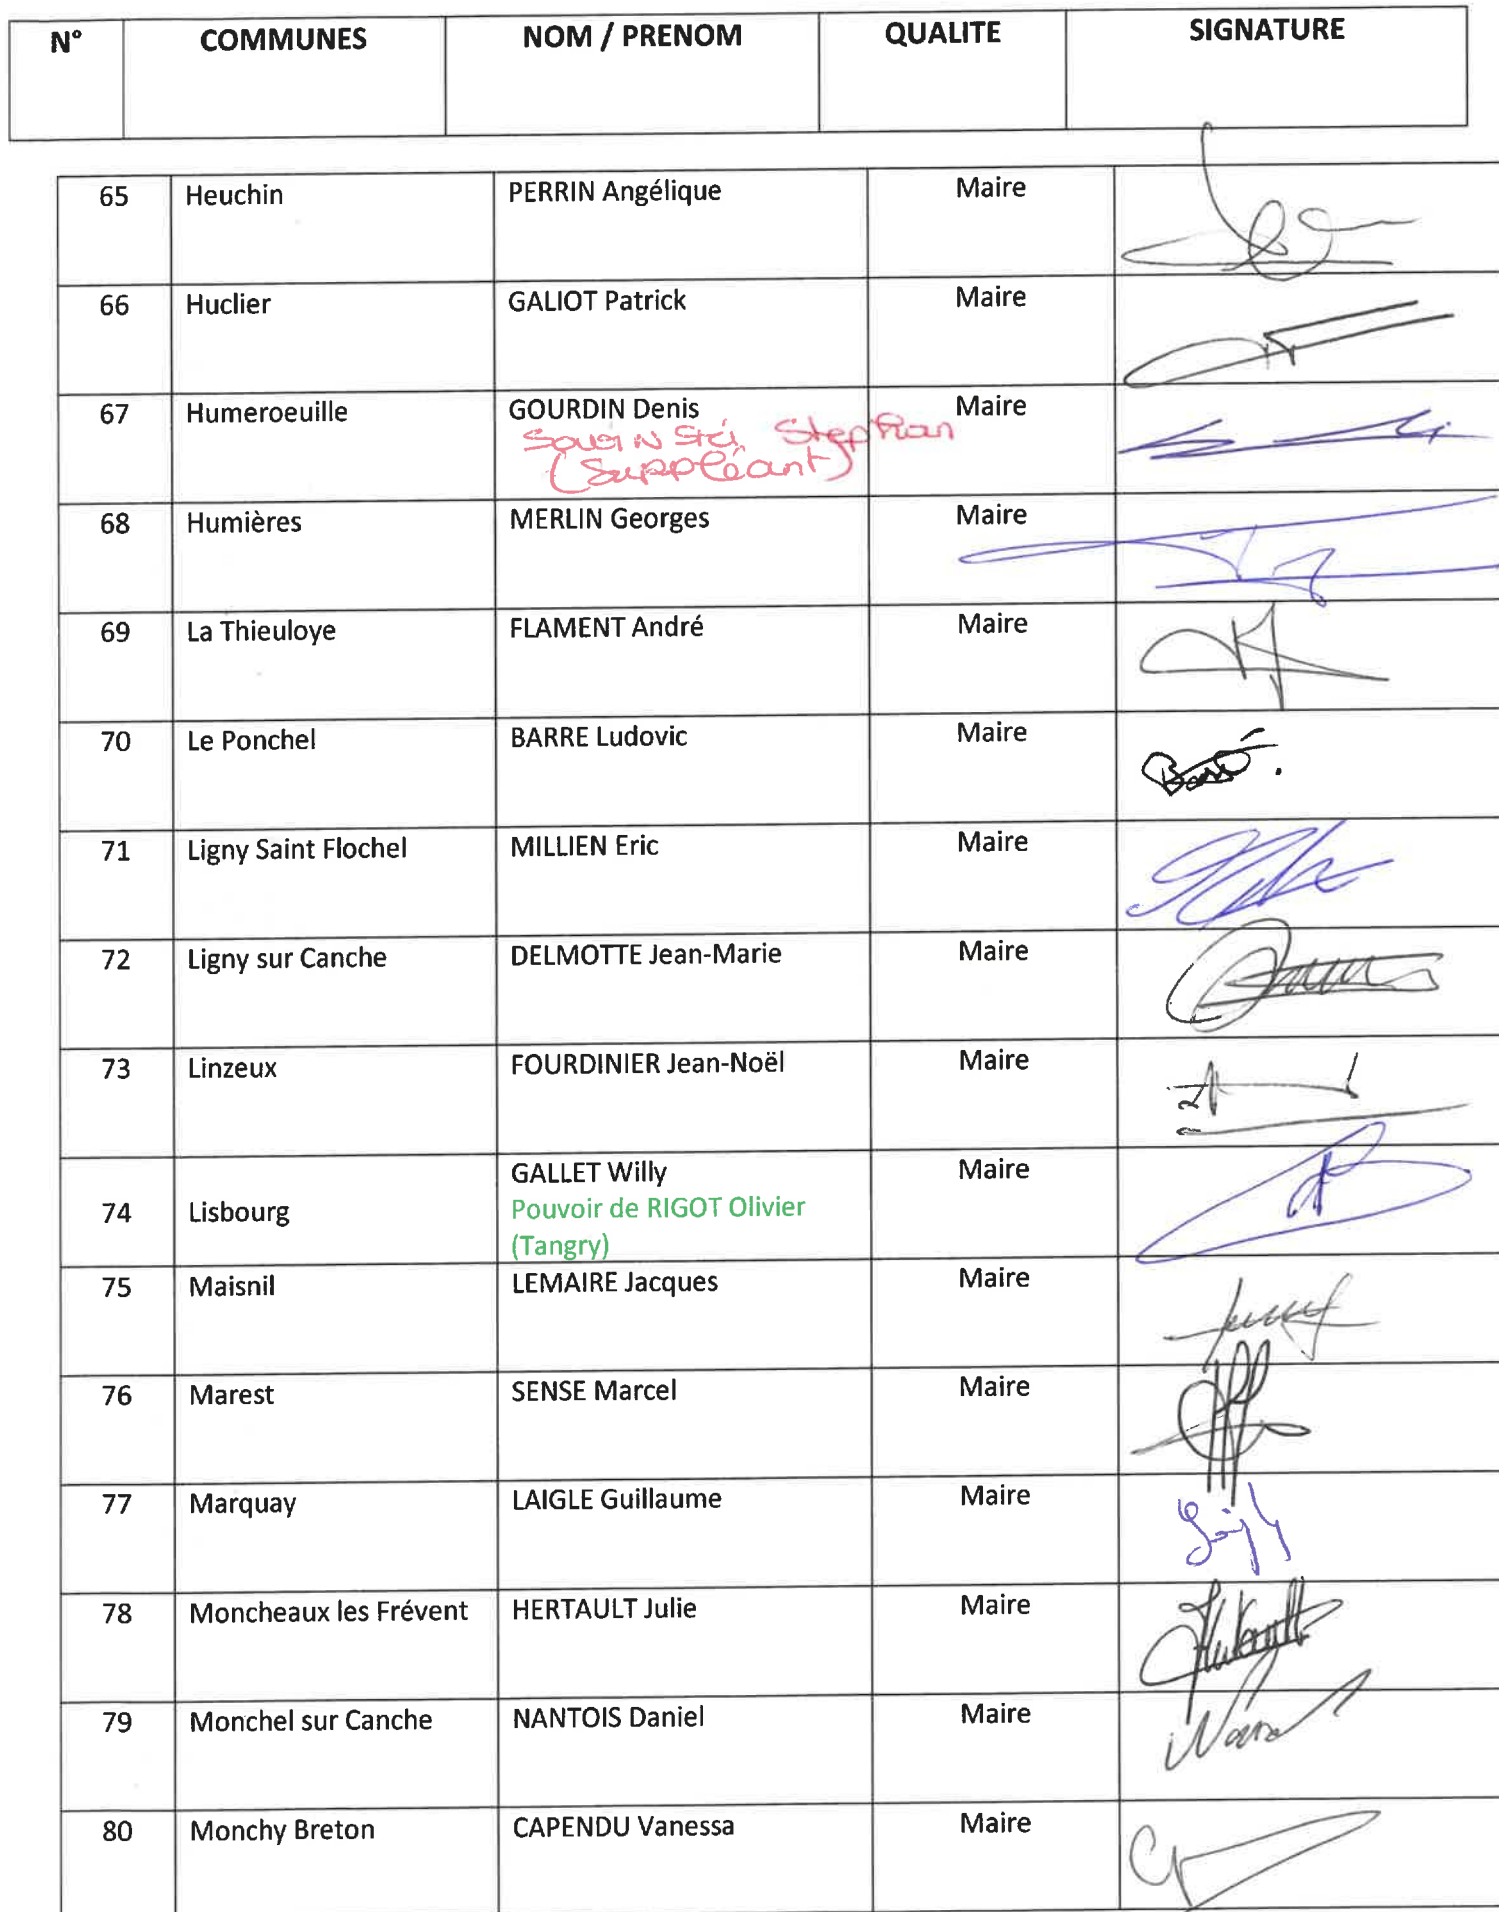 N° COMMUNES NOM / PRENOM QUALITE SIGNATURE
65 Heuchin PERRIN Angélique Maire
66 Huclier GALIOT Patrick Maire
67 Humeroeuille GOURDIN Denis Maire
Stephan
(Suppléant)
68 Humières MERLIN Georges Maire
69 La Thieuloye FLAMENT André Maire
70 Le Ponchel BARRE Ludovic Maire
71 Ligny Saint Flochel MILLIEN Eric Maire
72 Ligny sur Canche DELMOTTE Jean-Marie Maire
73 Linzeux FOURDINIER Jean-Noël Maire
GALLET Willy Maire
74 Lisbourg Pouvoir de RIGOT Olivier
(Tangry)
75 Maisnil LEMAIRE Jacques Maire
76 Marest SENSE Marcel Maire
77 Marquay LAIGLE Guillaume Maire
78 Moncheaux les Frévent HERTAULT Julie Maire
79 Monchel sur Canche NANTOIS Daniel Maire
80 Monchy Breton CAPENDU Vanessa Maire